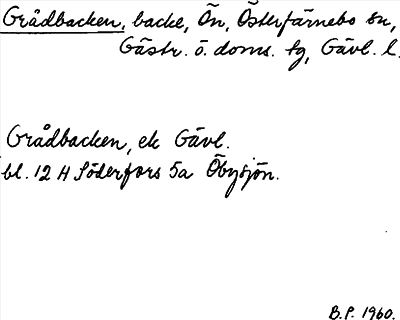 Grådbacken, backe, Ön, Österfärnebo sn,
Gästr. ö. doms. tg, Gävl. l.
Grådbacken, ek Gävl.
bl. 12 H Söderfors 5a Öbysjön.
B.P. 1960.